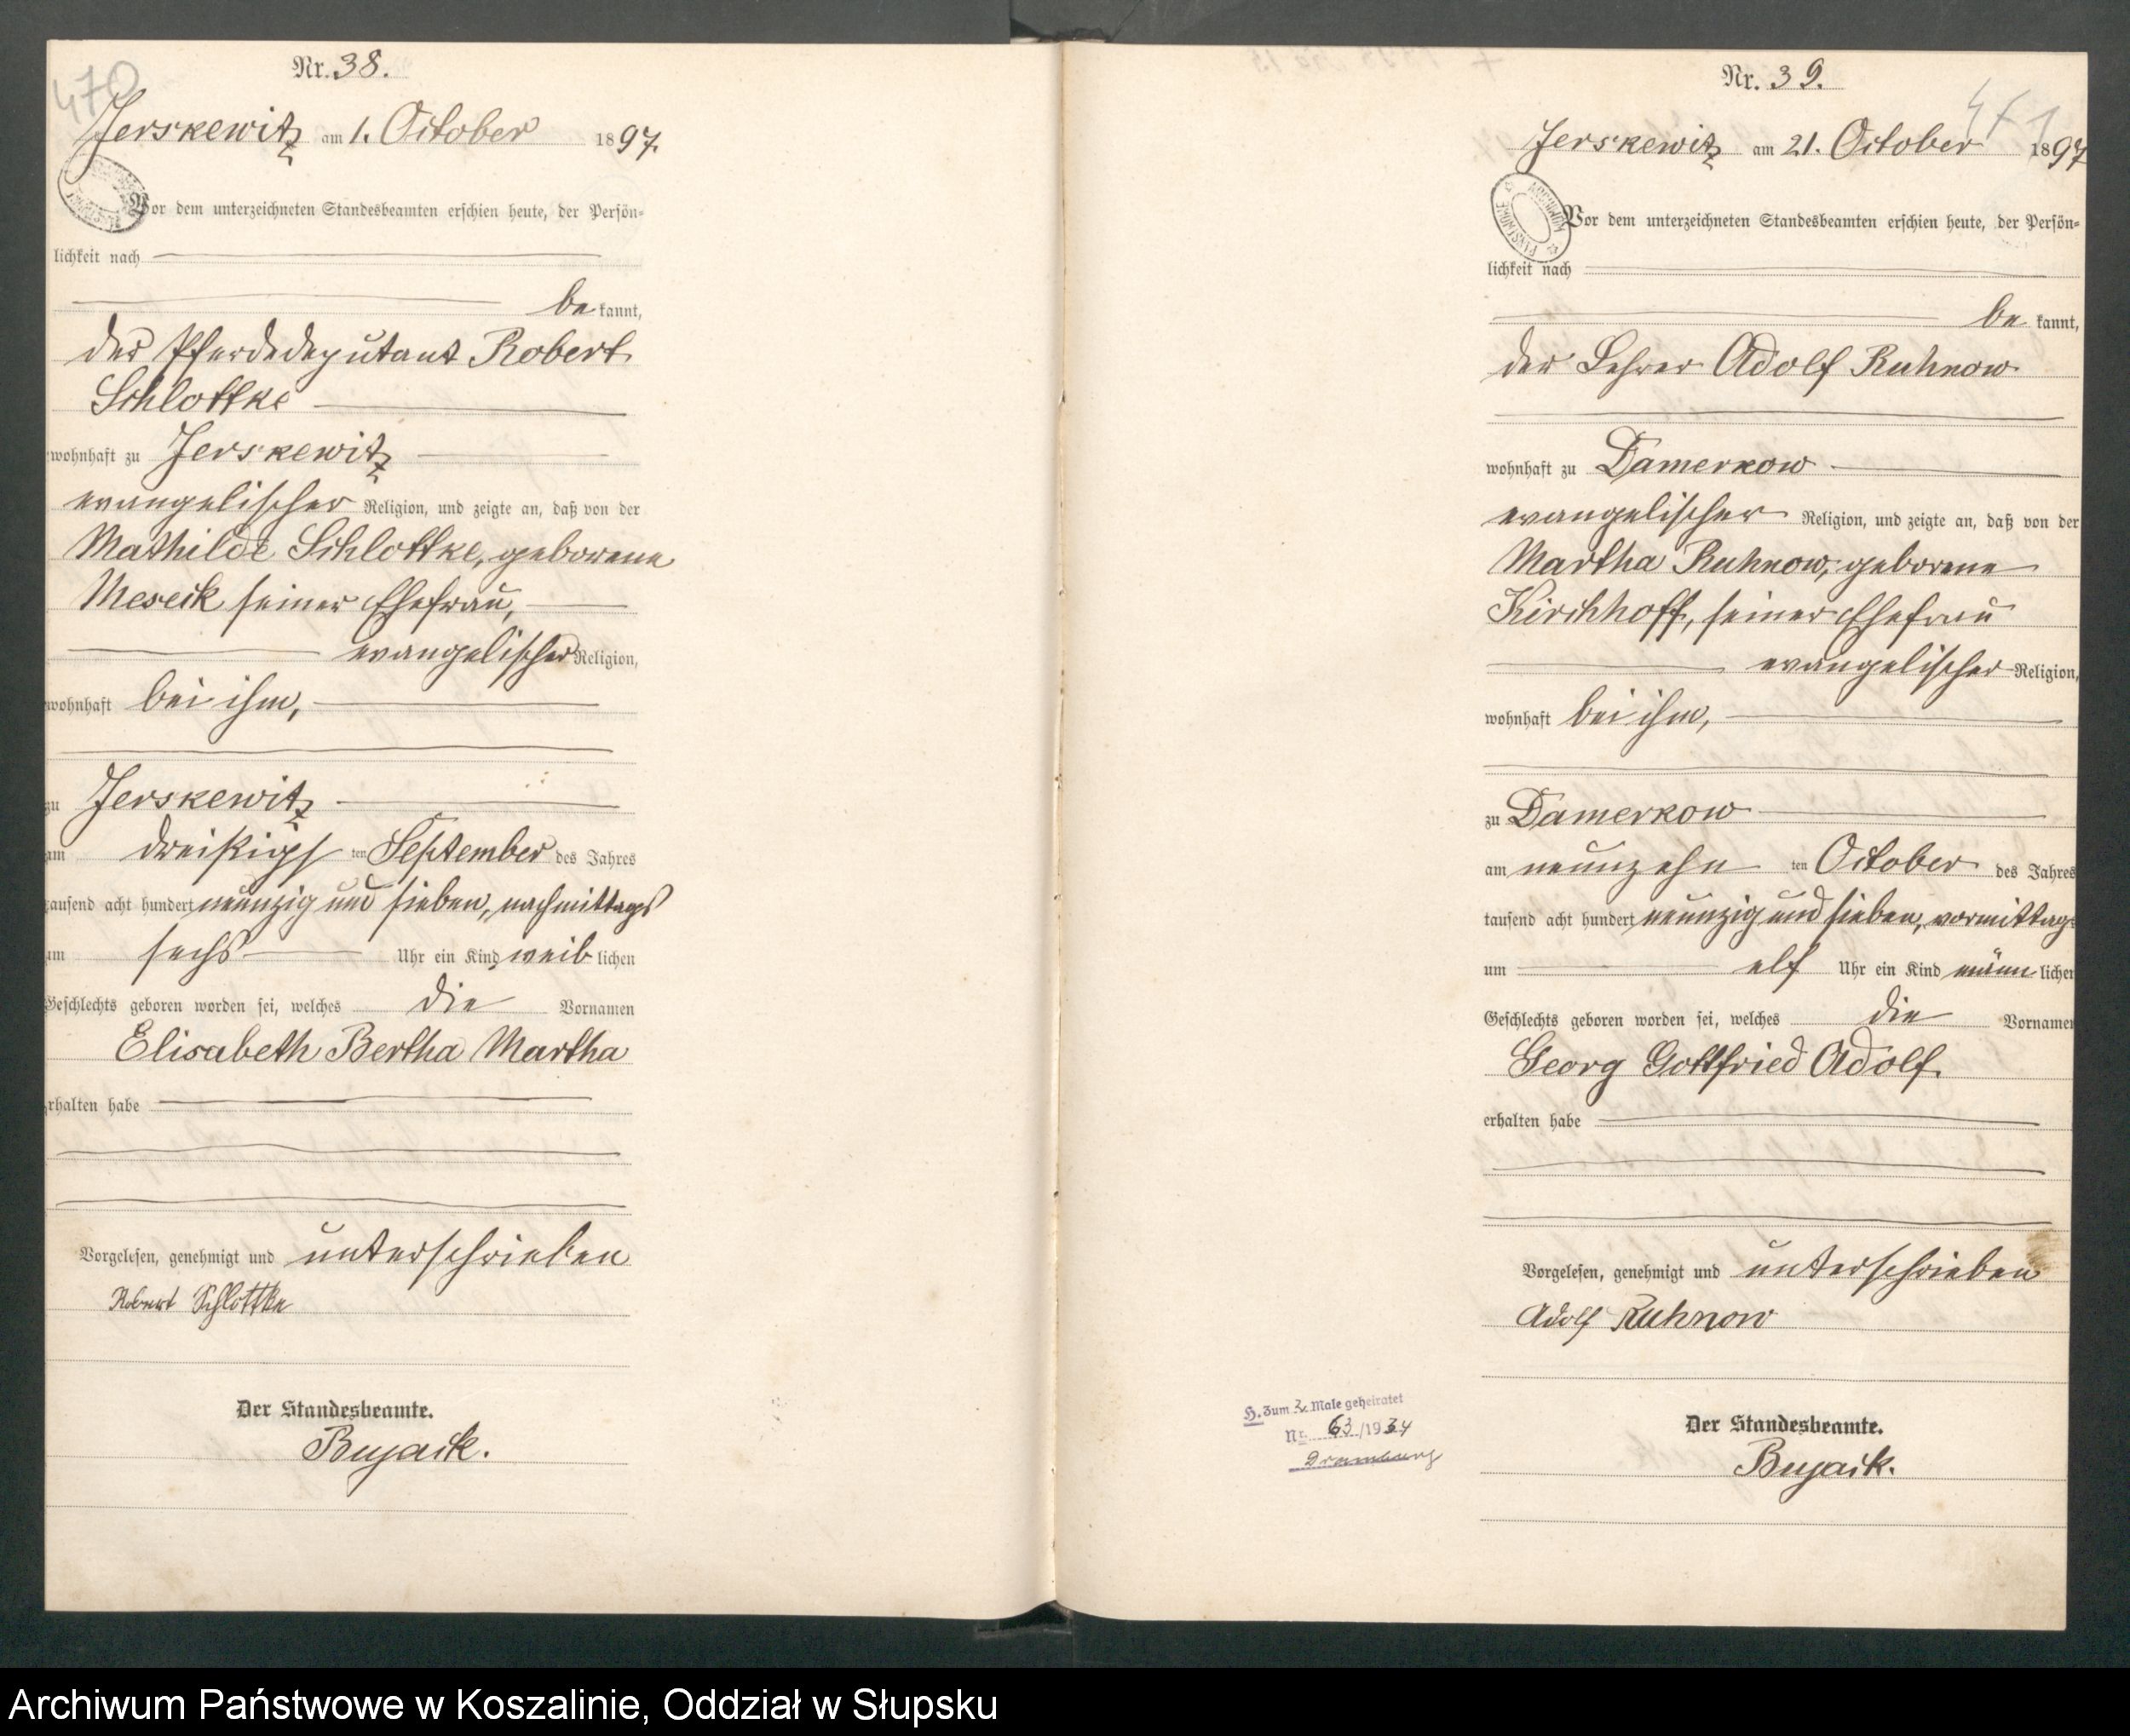 470
Nr. 38.
Jerskewitz am 1. October 1897.
Vor dem unterzeichneten Standesbeamten erschien heute, der Persön-
lichkeit nach
be kannt,
der Pferdedeputant Robert
Schlottke
wohnhaft zu Jerskewitz
evangelischer Religion, und zeigte an, daß von der
Mathilde Schlottke, geborene
Meseck seiner Ehefrau,
evangelischer Religion,
wohnhaft bei ihm,
zu Jerskewitz
am dreißigs ten September des Jahres
tausend acht hundert neunzig und sieben, nachmittags
um sechs Uhr ein Kind weib lichen
Geschlechts geboren worden sei, welches die Vornamen
Elisabeth Bertha Martha
erhalten habe
Vorgelesen, genehmigt und unterschrieben
Robert Schlottke
Der Standesbeamte.
Bujack.
471
Nr. 39.
Jerskewitz am 21. October 1897
Vor dem unterzeichneten Standesbeamten erschien heute, der Persön-
lichkeit nach
be kannt,
der Lehrer Adolf Ruhnow
wohnhaft zu Damerkow
evangelischer Religion, und zeigte an, daß von der
Martha Ruhnow, geborene
Kirchhoff, seiner Ehefrau
evangelischer Religion,
wohnhaft bei ihm,
zu Damerkow
am neunzehn ten October des Jahres
tausend acht hundert neunzig und sieben, vormittags
um elf Uhr ein Kind männ lichen
Geschlechts geboren worden sei, welches die Vornamen
Georg Gottfried Adolf.
erhalten habe
Vorgelesen, genehmigt und unterschrieben
Adolf Ruhnow
H. Zum 2. Male geheiratet
Nr. 63/1934
Dramburg
Der Standesbeamte.
Bujack.
Archiwum Państwowe w Koszalinie, Oddział w Słupsku